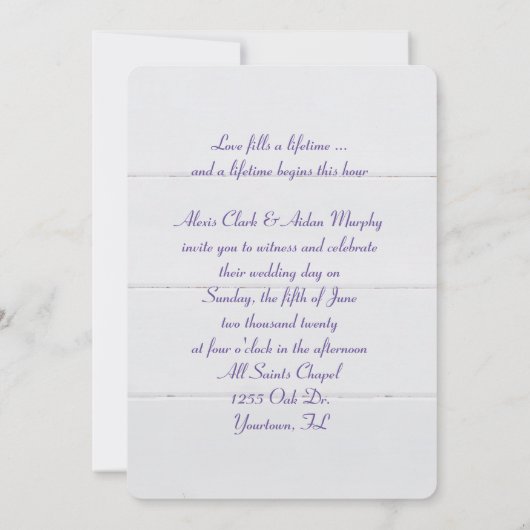 Love fills a lifetime ...
and a lifetime begins this hour
Alexis Clark & Aidan Murphy
invite you to witness and celebrate
their wedding day on
Sunday, the fifth of June
two thousand twenty
at four o'clock in the afternoon
All Saints Chapel
1255 Oak Dr.
Yourtown, FL